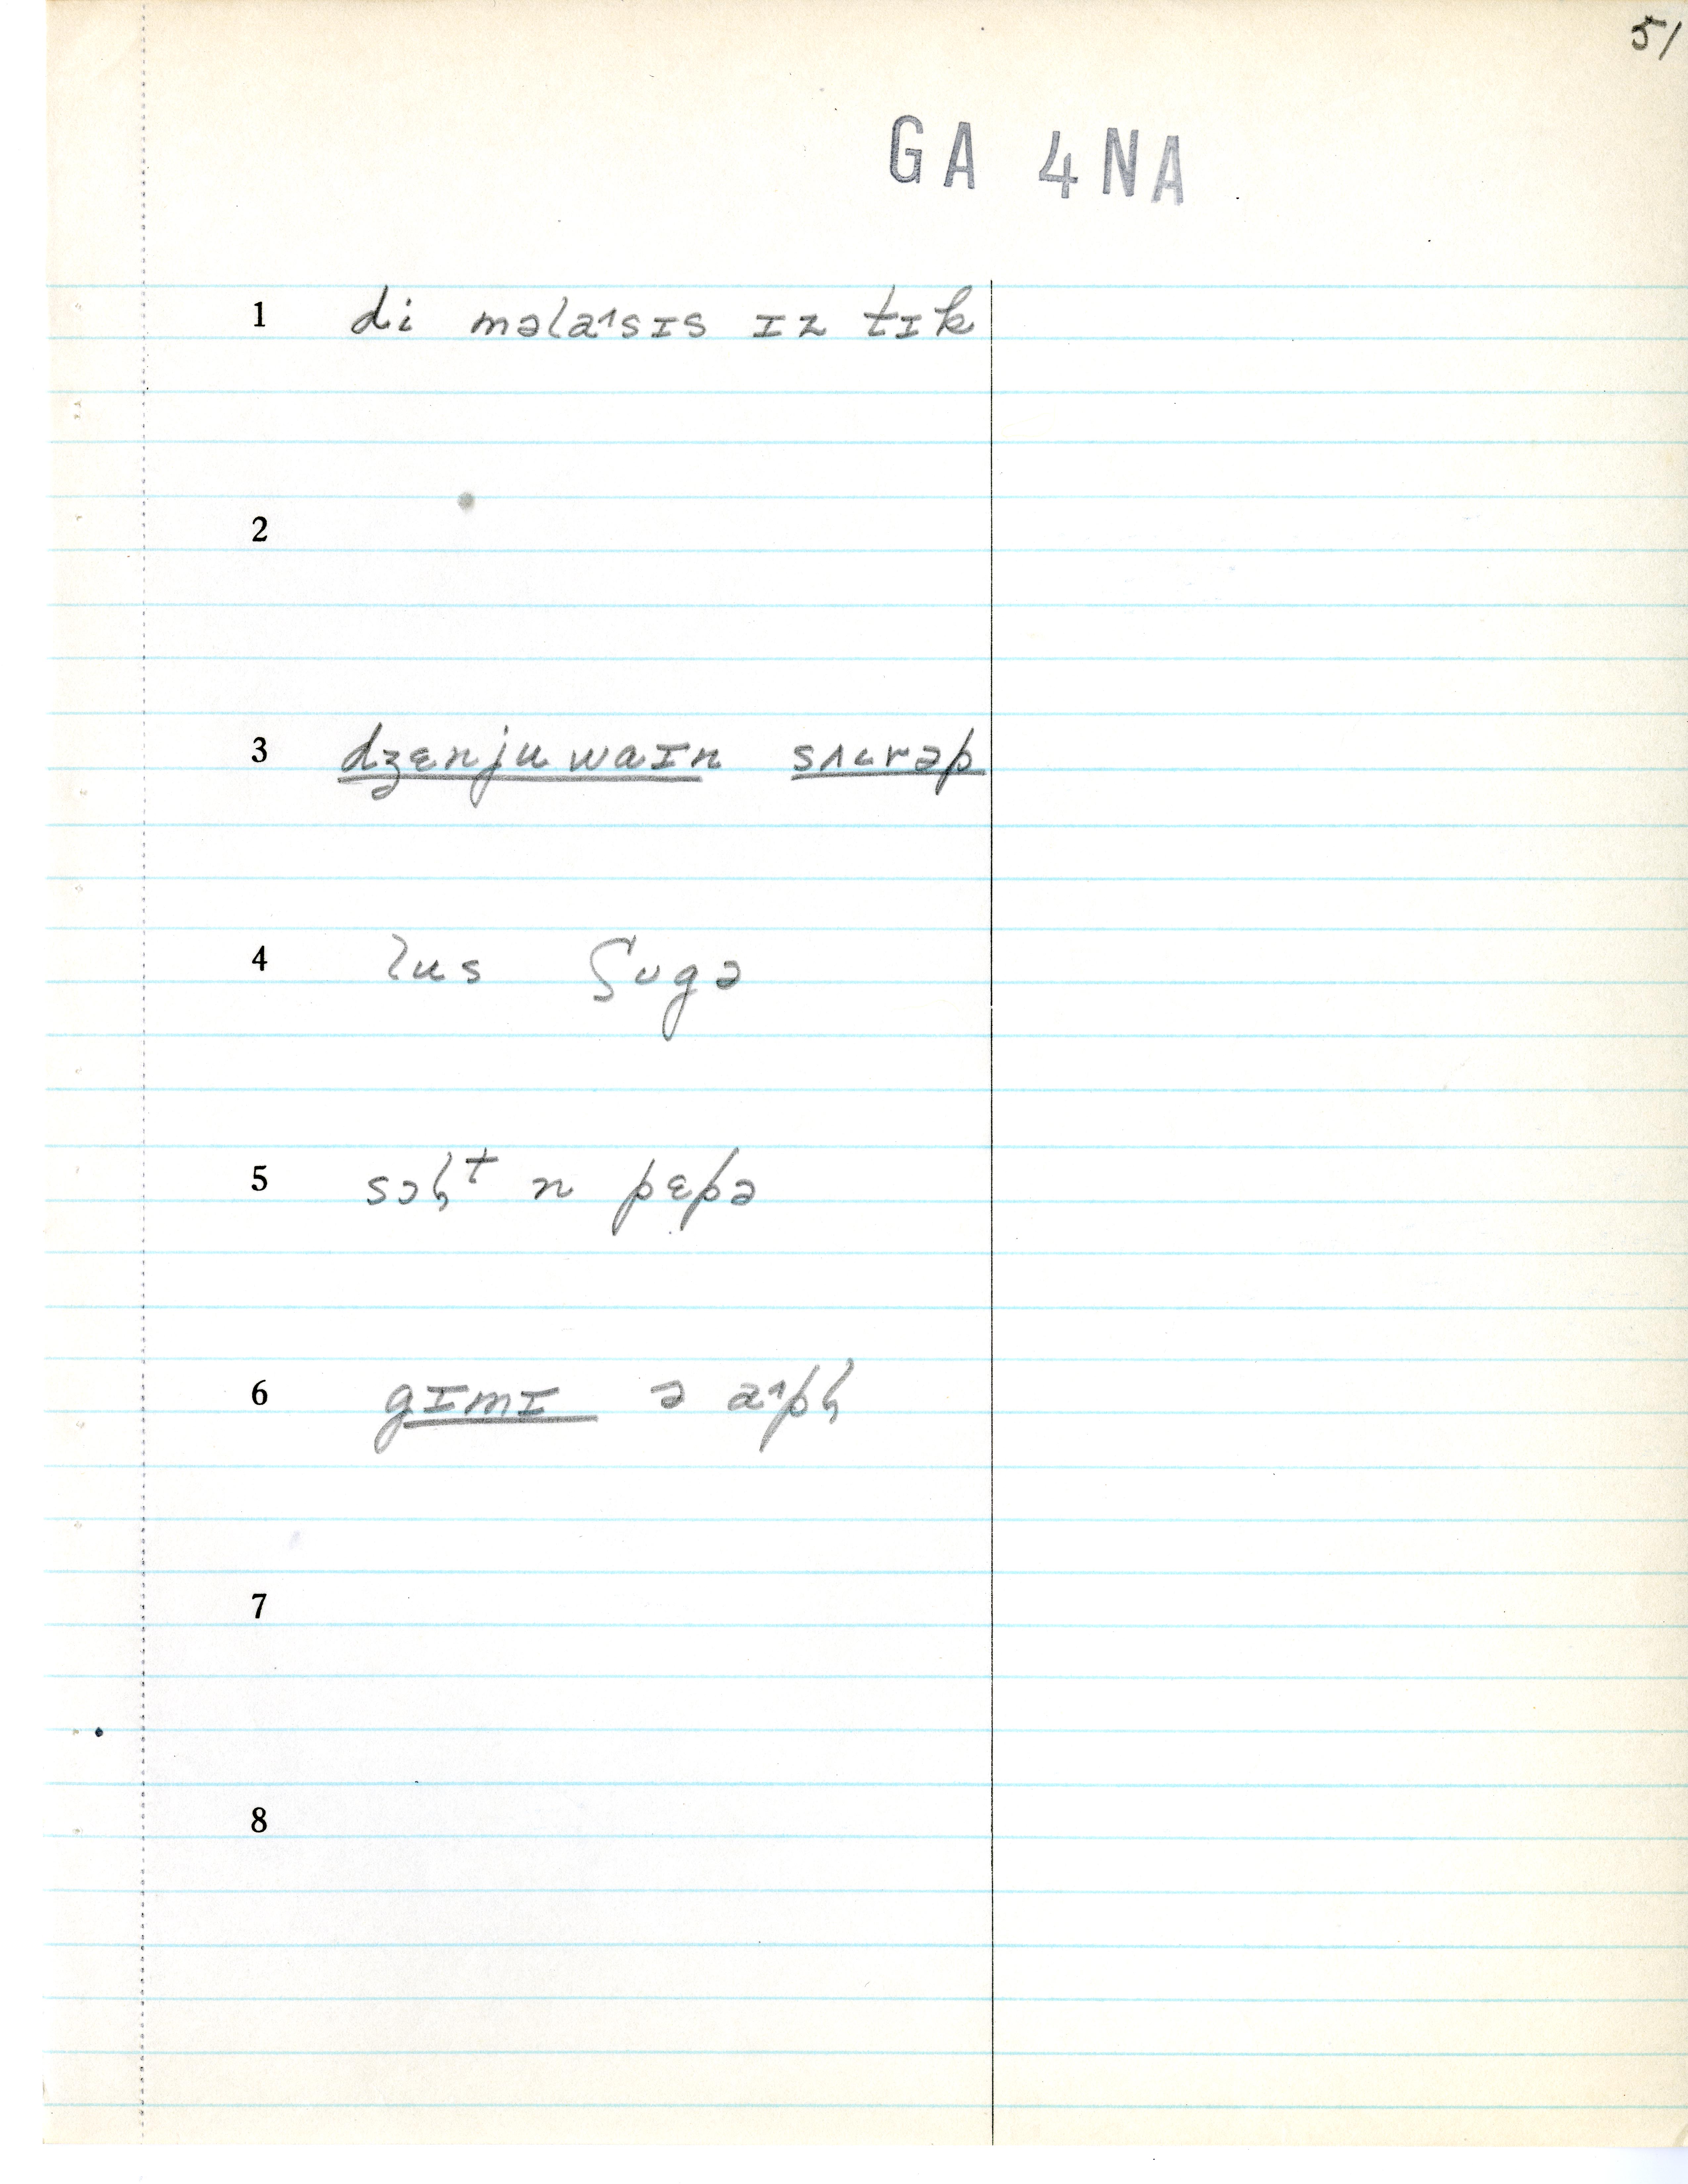 51
GA 4NA
1 di məla˄sɪs ɪz tɪk
2
3 dʒɛnjuwaɪn sʌɪrəp
4 lus ʃʊgə
5 sɔɦᵗ n pɛpə
6 gɪmɪ ə a˄pɦ
7
8